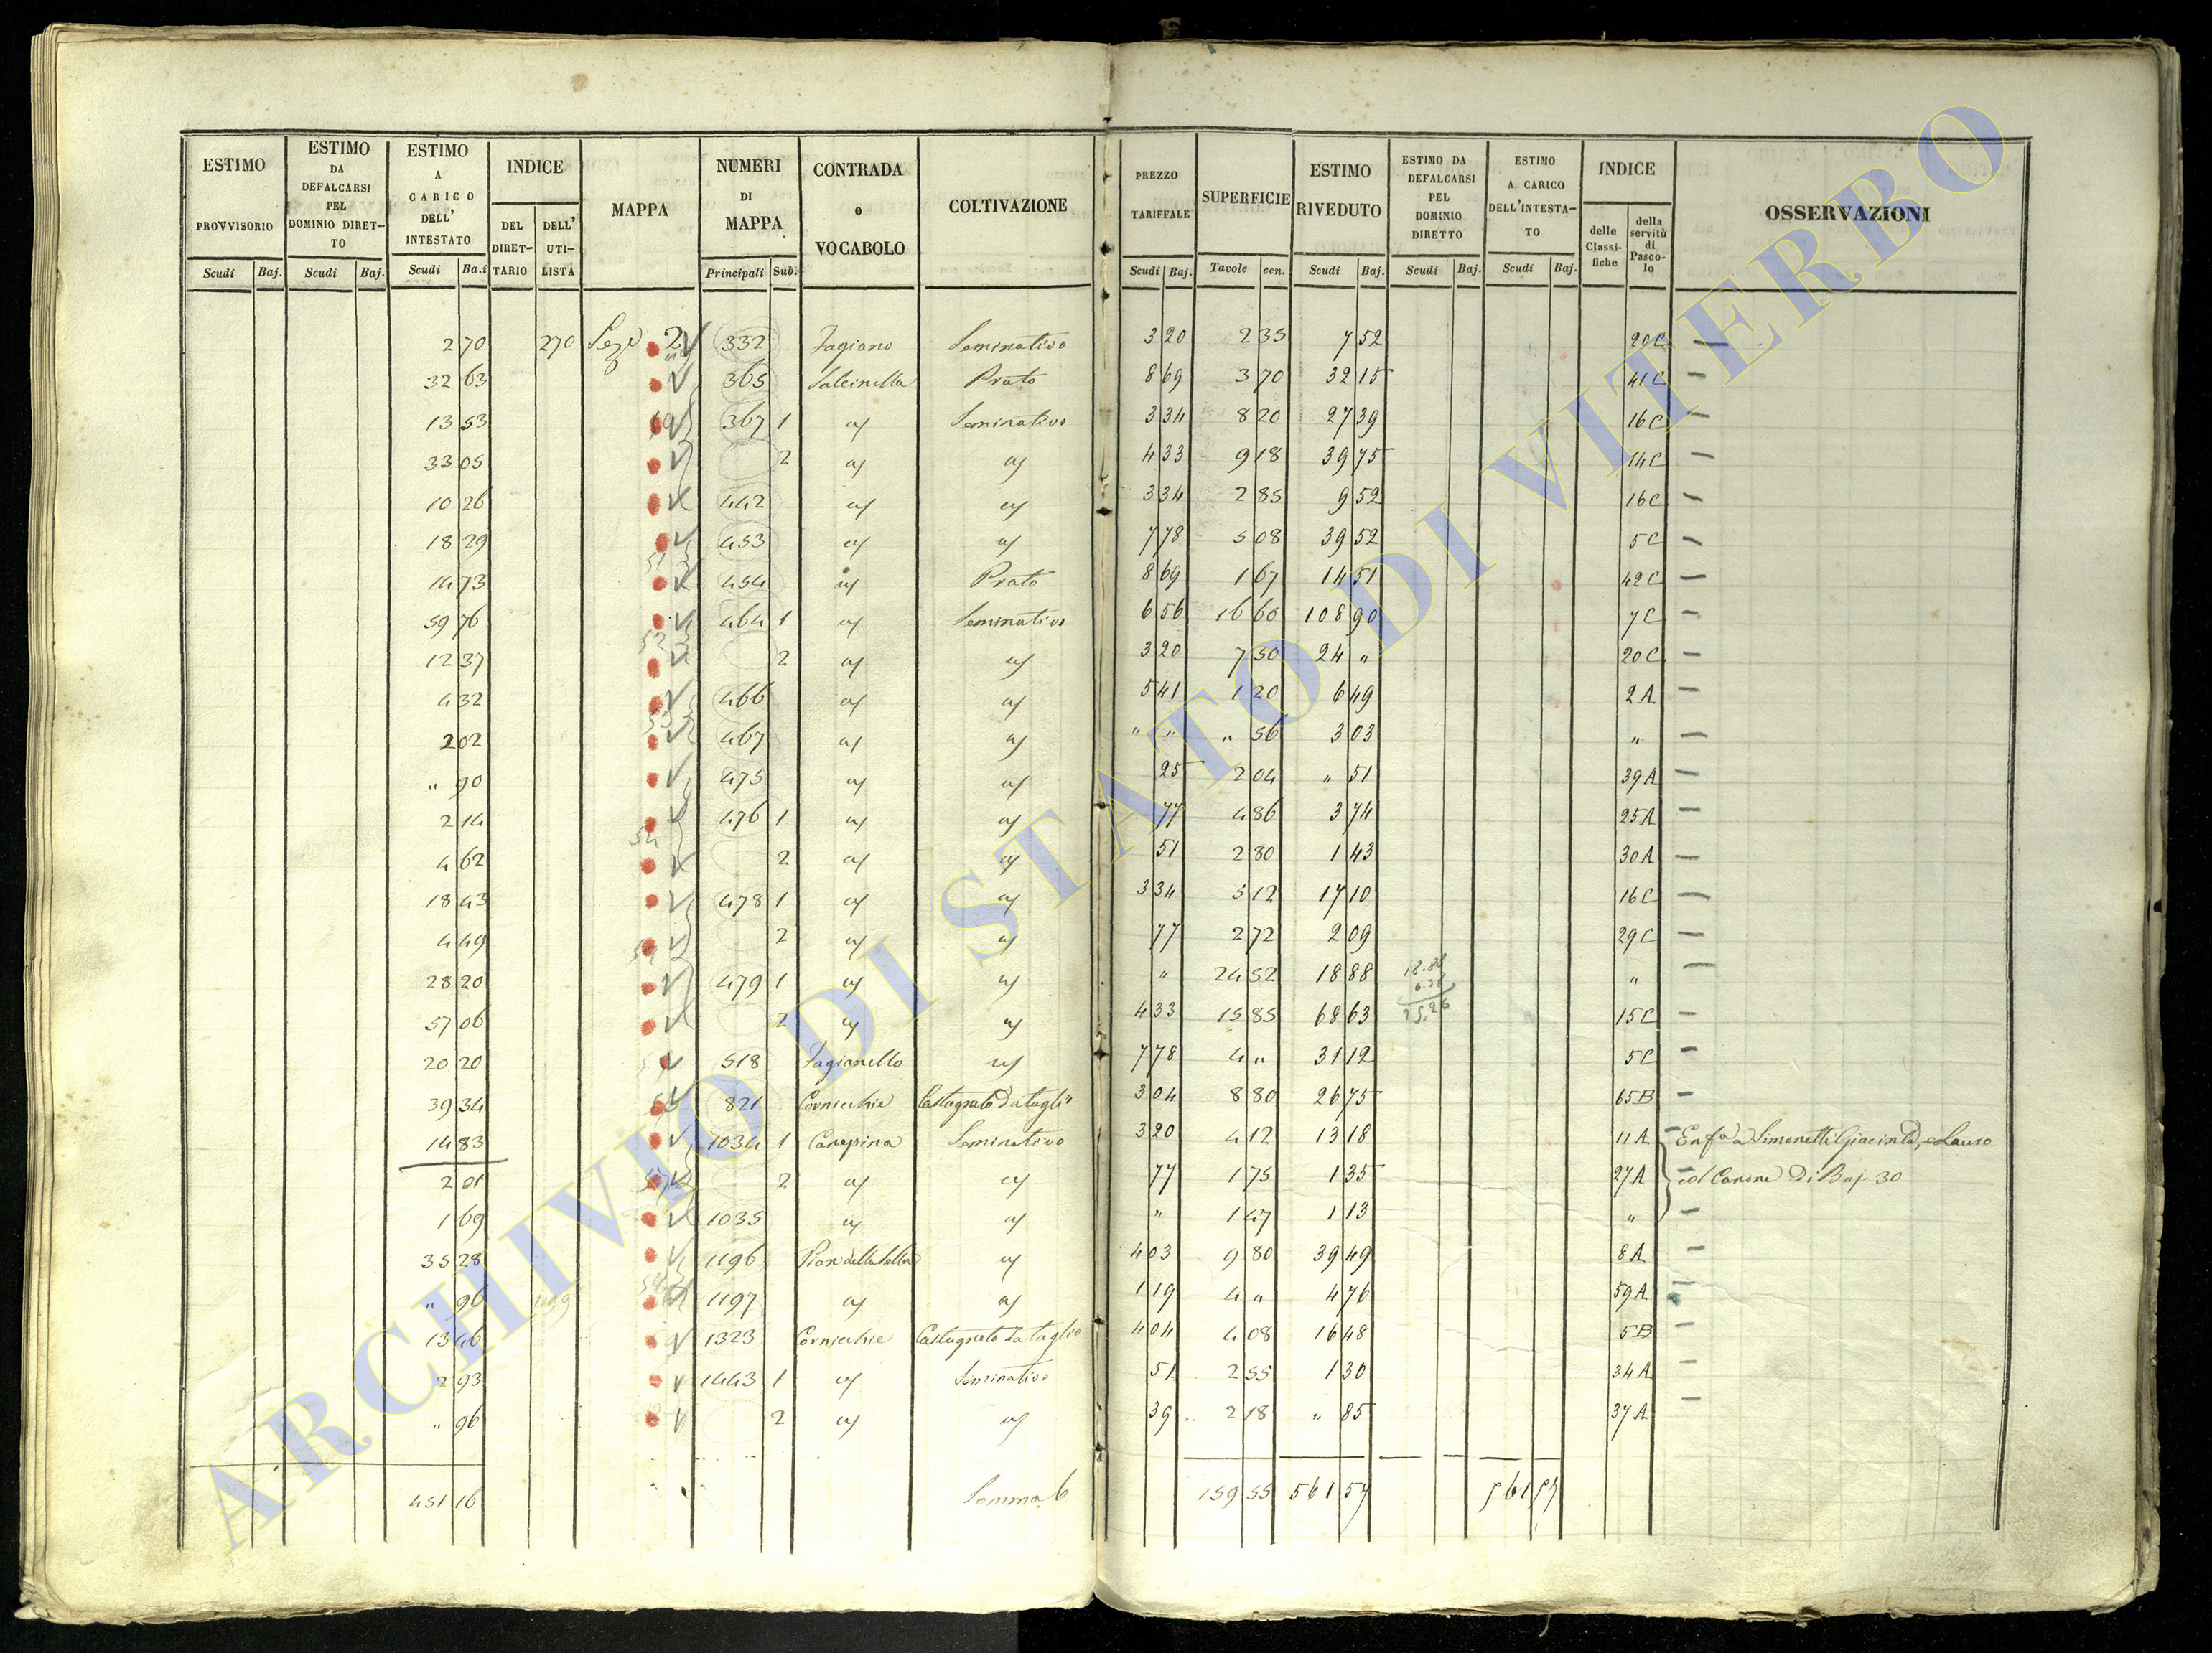 ESTIMO PROVVISORIO
Scudi Baj.
ESTIMO DA DEFALCARSI PEL DOMINIO DIRET-TO
Scudi Baj.
ESTIMO A CARICO DELL' INTESTATO
Scudi Ba.i
INDICE
DEL DIRET-TARIO
DELL' UTI-LISTA
MAPPA
NUMERI DI MAPPA
Principali Sub.
CONTRADA o VOCABOLO
COLTIVAZIONE
PREZZO TARIFFALE
Scudi Baj.
SUPERFICIE
Tavole cen.
ESTIMO RIVEDUTO
Scudi Baj.
ESTIMO DA DEFALCARSI PEL DOMINIO DIRETTO
Scudi Baj.
ESTIMO A CARICO DELL'INTESTA-TO
Scudi Baj.
INDICE
delle Classi-fiche
della servitù di Pasco-lo
OSSERVAZIONI
2 70 270 Sez.e 2 332 Fagiano Seminativo 3 20 2 35 7 52 20C —
32 63 365 Salcinella Prato 8 69 3 70 32 15 41C —
13 53 367 1 " Seminativo 3 34 8 20 27 39 16C —
33 05 2 " " 4 33 9 18 39 75 14C —
10 26 442 " " 3 34 2 85 9 52 16C —
18 29 453 " " 7 78 5 08 39 52 5C —
14 73 454 " Prato 8 69 1 67 14 51 42C —
59 76 464 1 " Seminativo 6 56 16 60 108 90 7C —
12 37 2 " " 3 20 7 50 24 " 20C —
4 32 466 " " 5 41 1 20 6 49 2A —
2 02 467 " " " " " 56 3 03 " —
" 90 475 " " 25 2 04 " 51 39A —
2 14 476 1 " " 77 4 86 3 74 25A —
4 62 2 " " 51 2 80 1 43 30A —
18 43 478 1 " " 3 34 5 12 17 10 16C —
4 49 2 " " 77 2 72 2 09 29C —
28 20 479 1 " " " 24 52 18 88 " —
57 06 2 " " 4 33 15 85 68 63 15C —
20 20 518 Fagianello " 7 78 4 " 31 12 5C —
39 34 821 Cornicchie Castagneto da taglio 3 04 8 80 26 75 65B —
14 83 1034 1 Carepina Seminativo 3 20 4 12 13 18 11A — Enf.a a Simonetti Giacinta, e Lauro
2 01 2 " " 77 1 75 1 35 27A — col Canone di Baj. 30
1 69 1035 " " " 1 47 1 13 " —
35 28 1196 Pian della Sella " 4 03 9 80 39 49 8A —
" 96 1199 1197 " " 1 19 4 " 4 76 59A —
13 46 1323 Cornicchie Castagneto da taglio 4 04 4 08 16 48 5B —
2 93 1443 1 " Seminativo 51 2 55 1 30 34A —
" 96 2 " " 39 2 18 " 85 37A —
451 16 Somma 6 159 55 561 57 561 57
ARCHIVIO DI STATO DI VITERBO